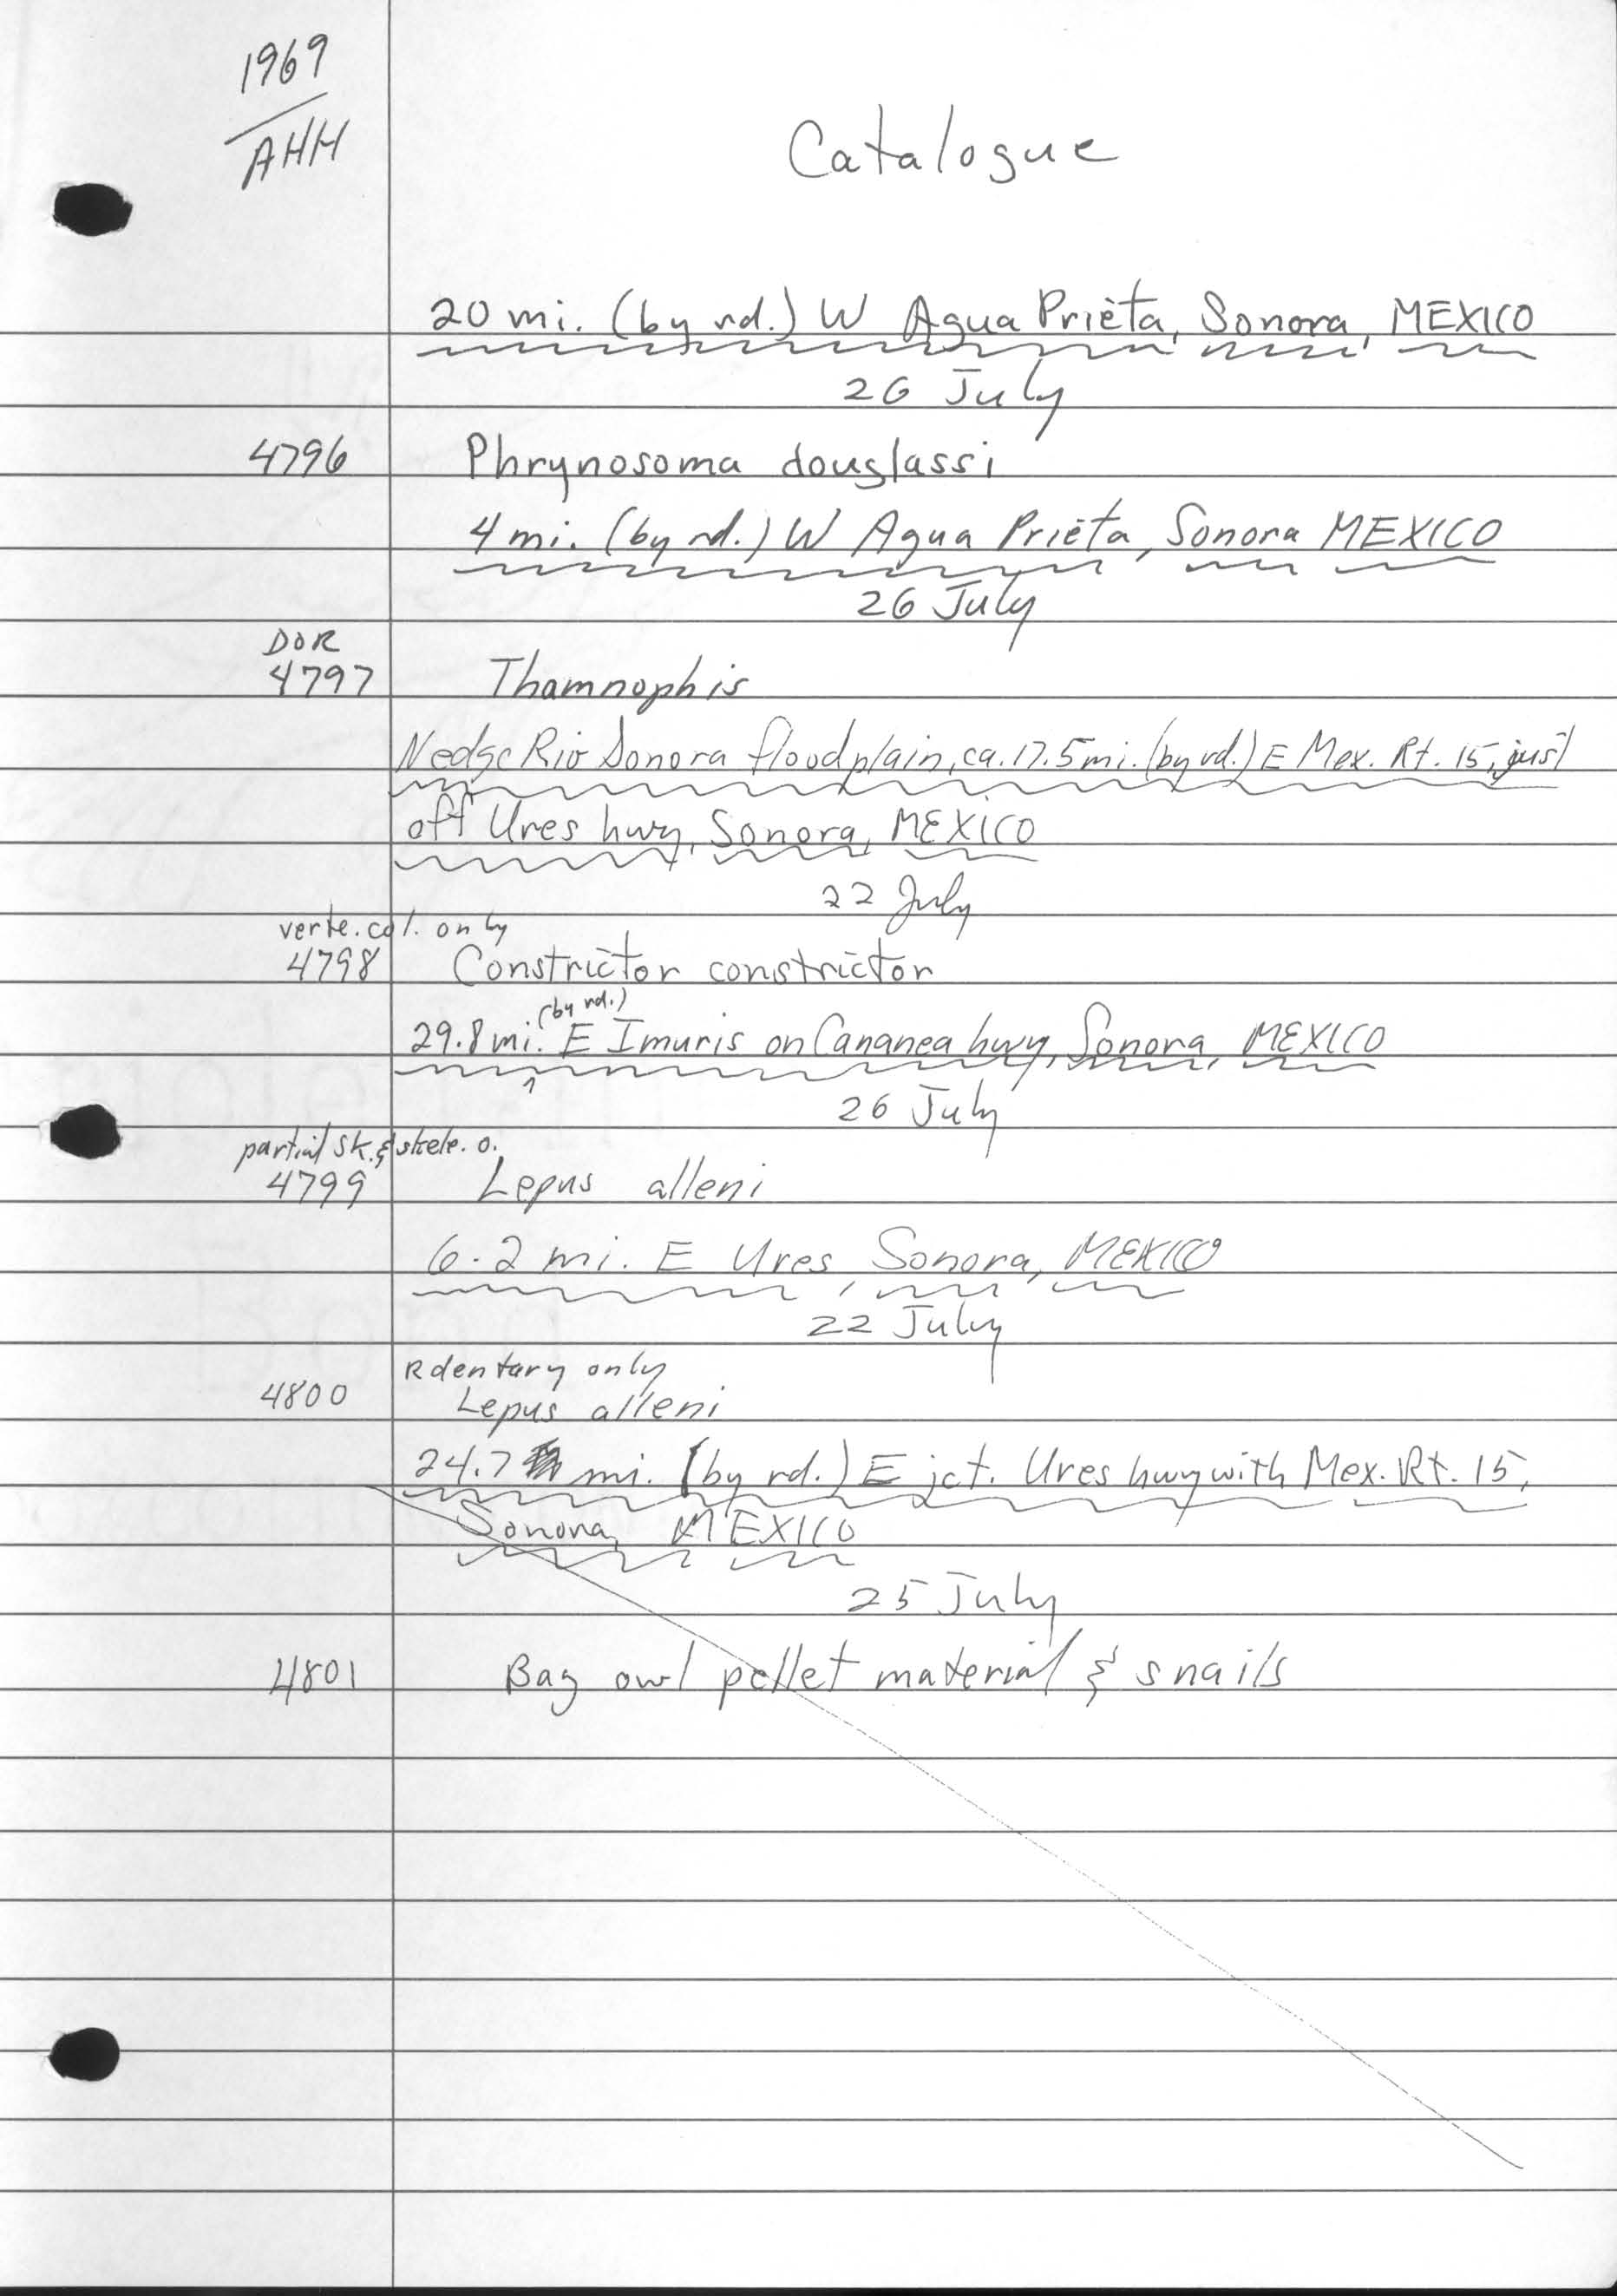 1969
AHH
Catalogue
20 mi. (by rd.) W Agua Prieta, Sonora, MEXICO
26 July
4796 Phrynosoma douglassi
4 mi. (by rd.) W Agua Prieta, Sonora MEXICO
26 July
DOR
4797 Thamnophis
N edge Rio Sonora floodplain, ca. 17.5 mi. (by rd.) E Mex. Rt. 15, just
off Ures hwy, Sonora, MEXICO
22 July
verte. col. only
4798 Constrictor constrictor
(by rd.)
29.8 mi. E Imuris on Cananea hwy, Sonora, MEXICO
26 July
partial sk. & skele. o.
4799 Lepus alleni
6.2 mi. E Ures, Sonora, MEXICO
22 July
R dentary only
4800 Lepus alleni
24.7 mi. (by rd.) E jct. Ures hwy with Mex. Rt. 15,
Sonora, MEXICO
25 July
4801 Bag owl pellet material & snails